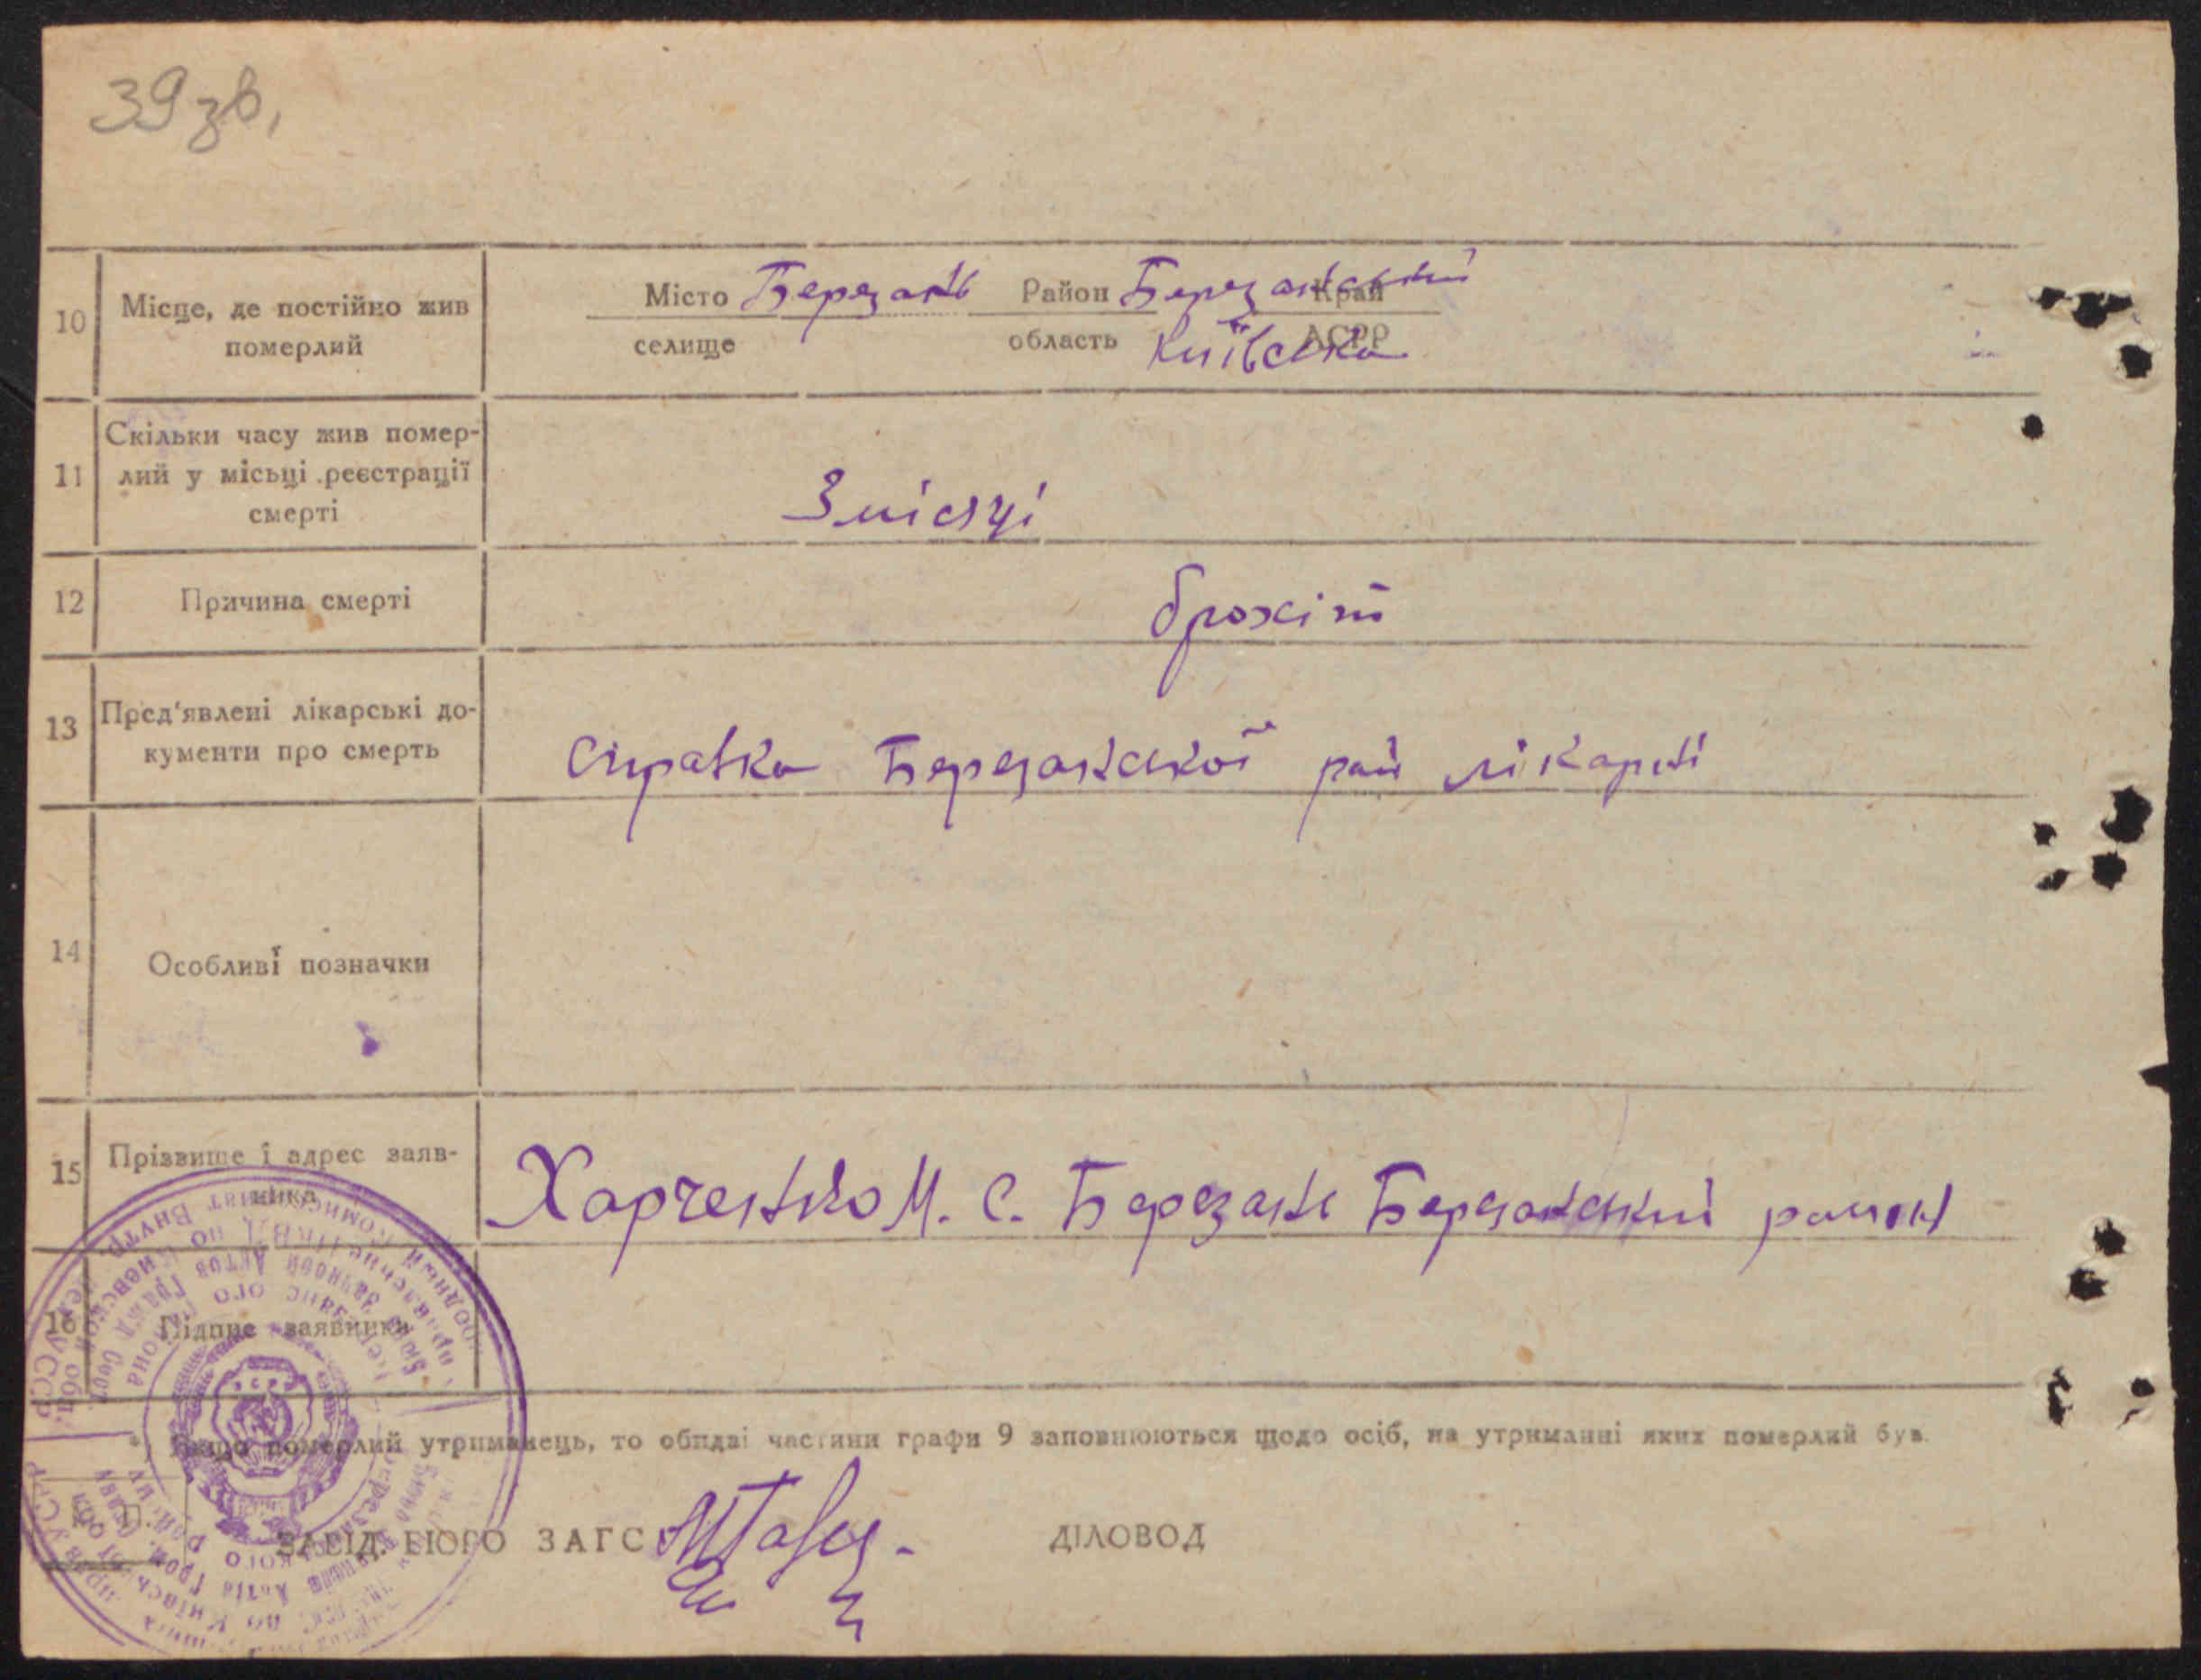 39 зв,
10 Місце, де постійно жив померлий
Місто Березань Район Березанський Край
селище область Київська АСРР
11 Скільки часу жив помер-
лий у місьці реєстрації
смерті
3 місяці
12 Причина смерті
брохіт
13 Пред'явлені лікарські до-
кументи про смерть
справка Березанської рай лікарні
14 Особливі позначки
15 Прізвище і адрес заяв-
ника
Харченко М. С. Березань Березанський район
16 Підпис заявника
Якщо померлий утриманець, то обидві частини графи 9 заповнюються щодо осіб, на утриманні яких померлий був.
М. П.
ЗАВІД. БЮРО ЗАГС ДІЛОВОД